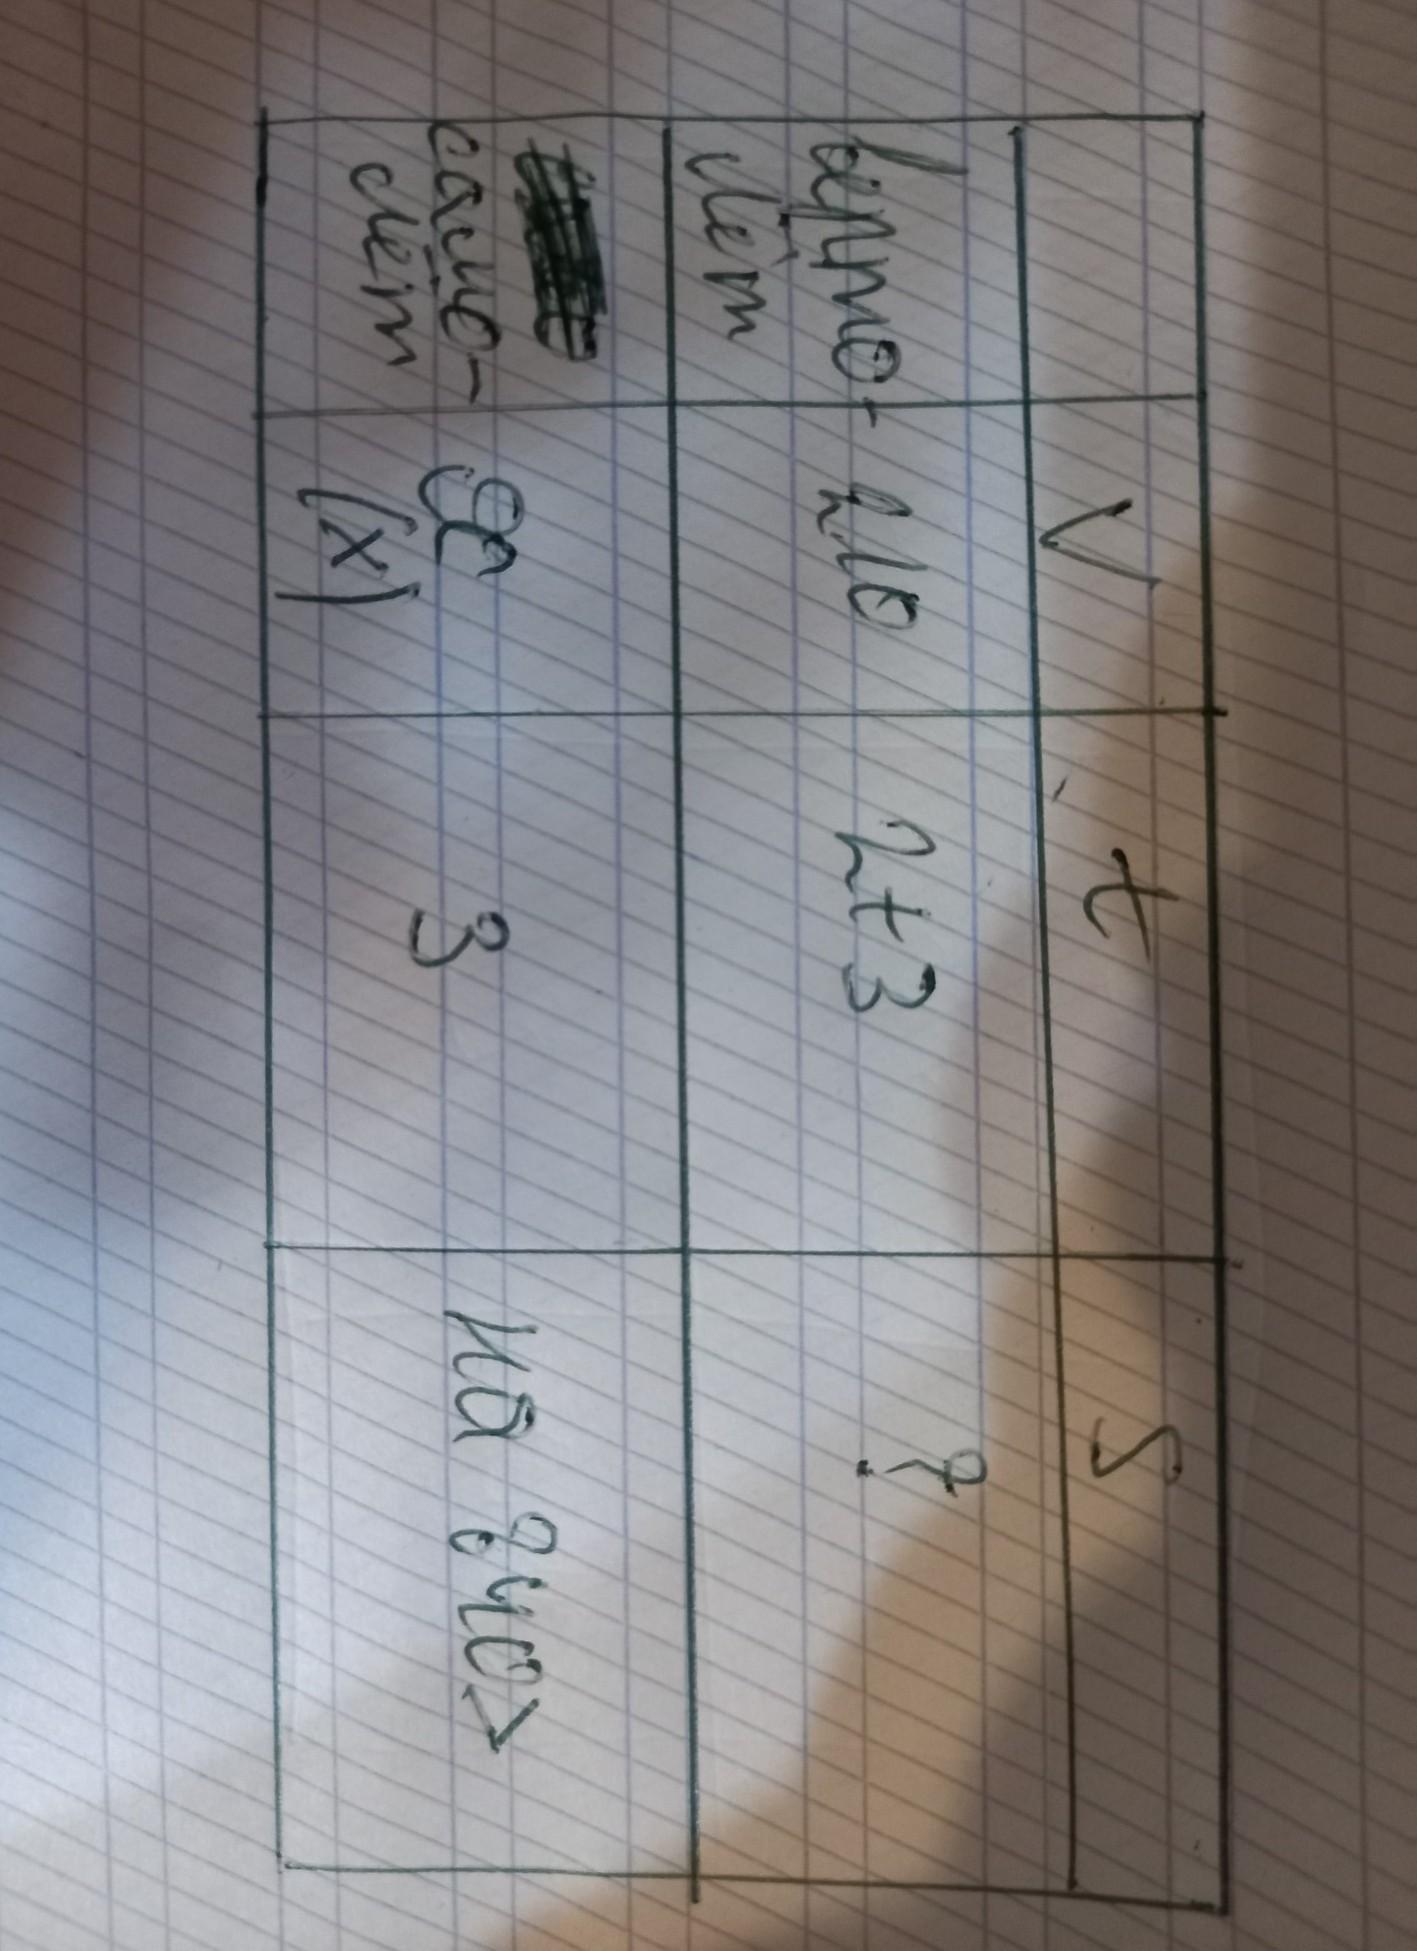 V t S
верто-
лёт 210 2+3 ?
само-
лёт (x) 3 на 840>